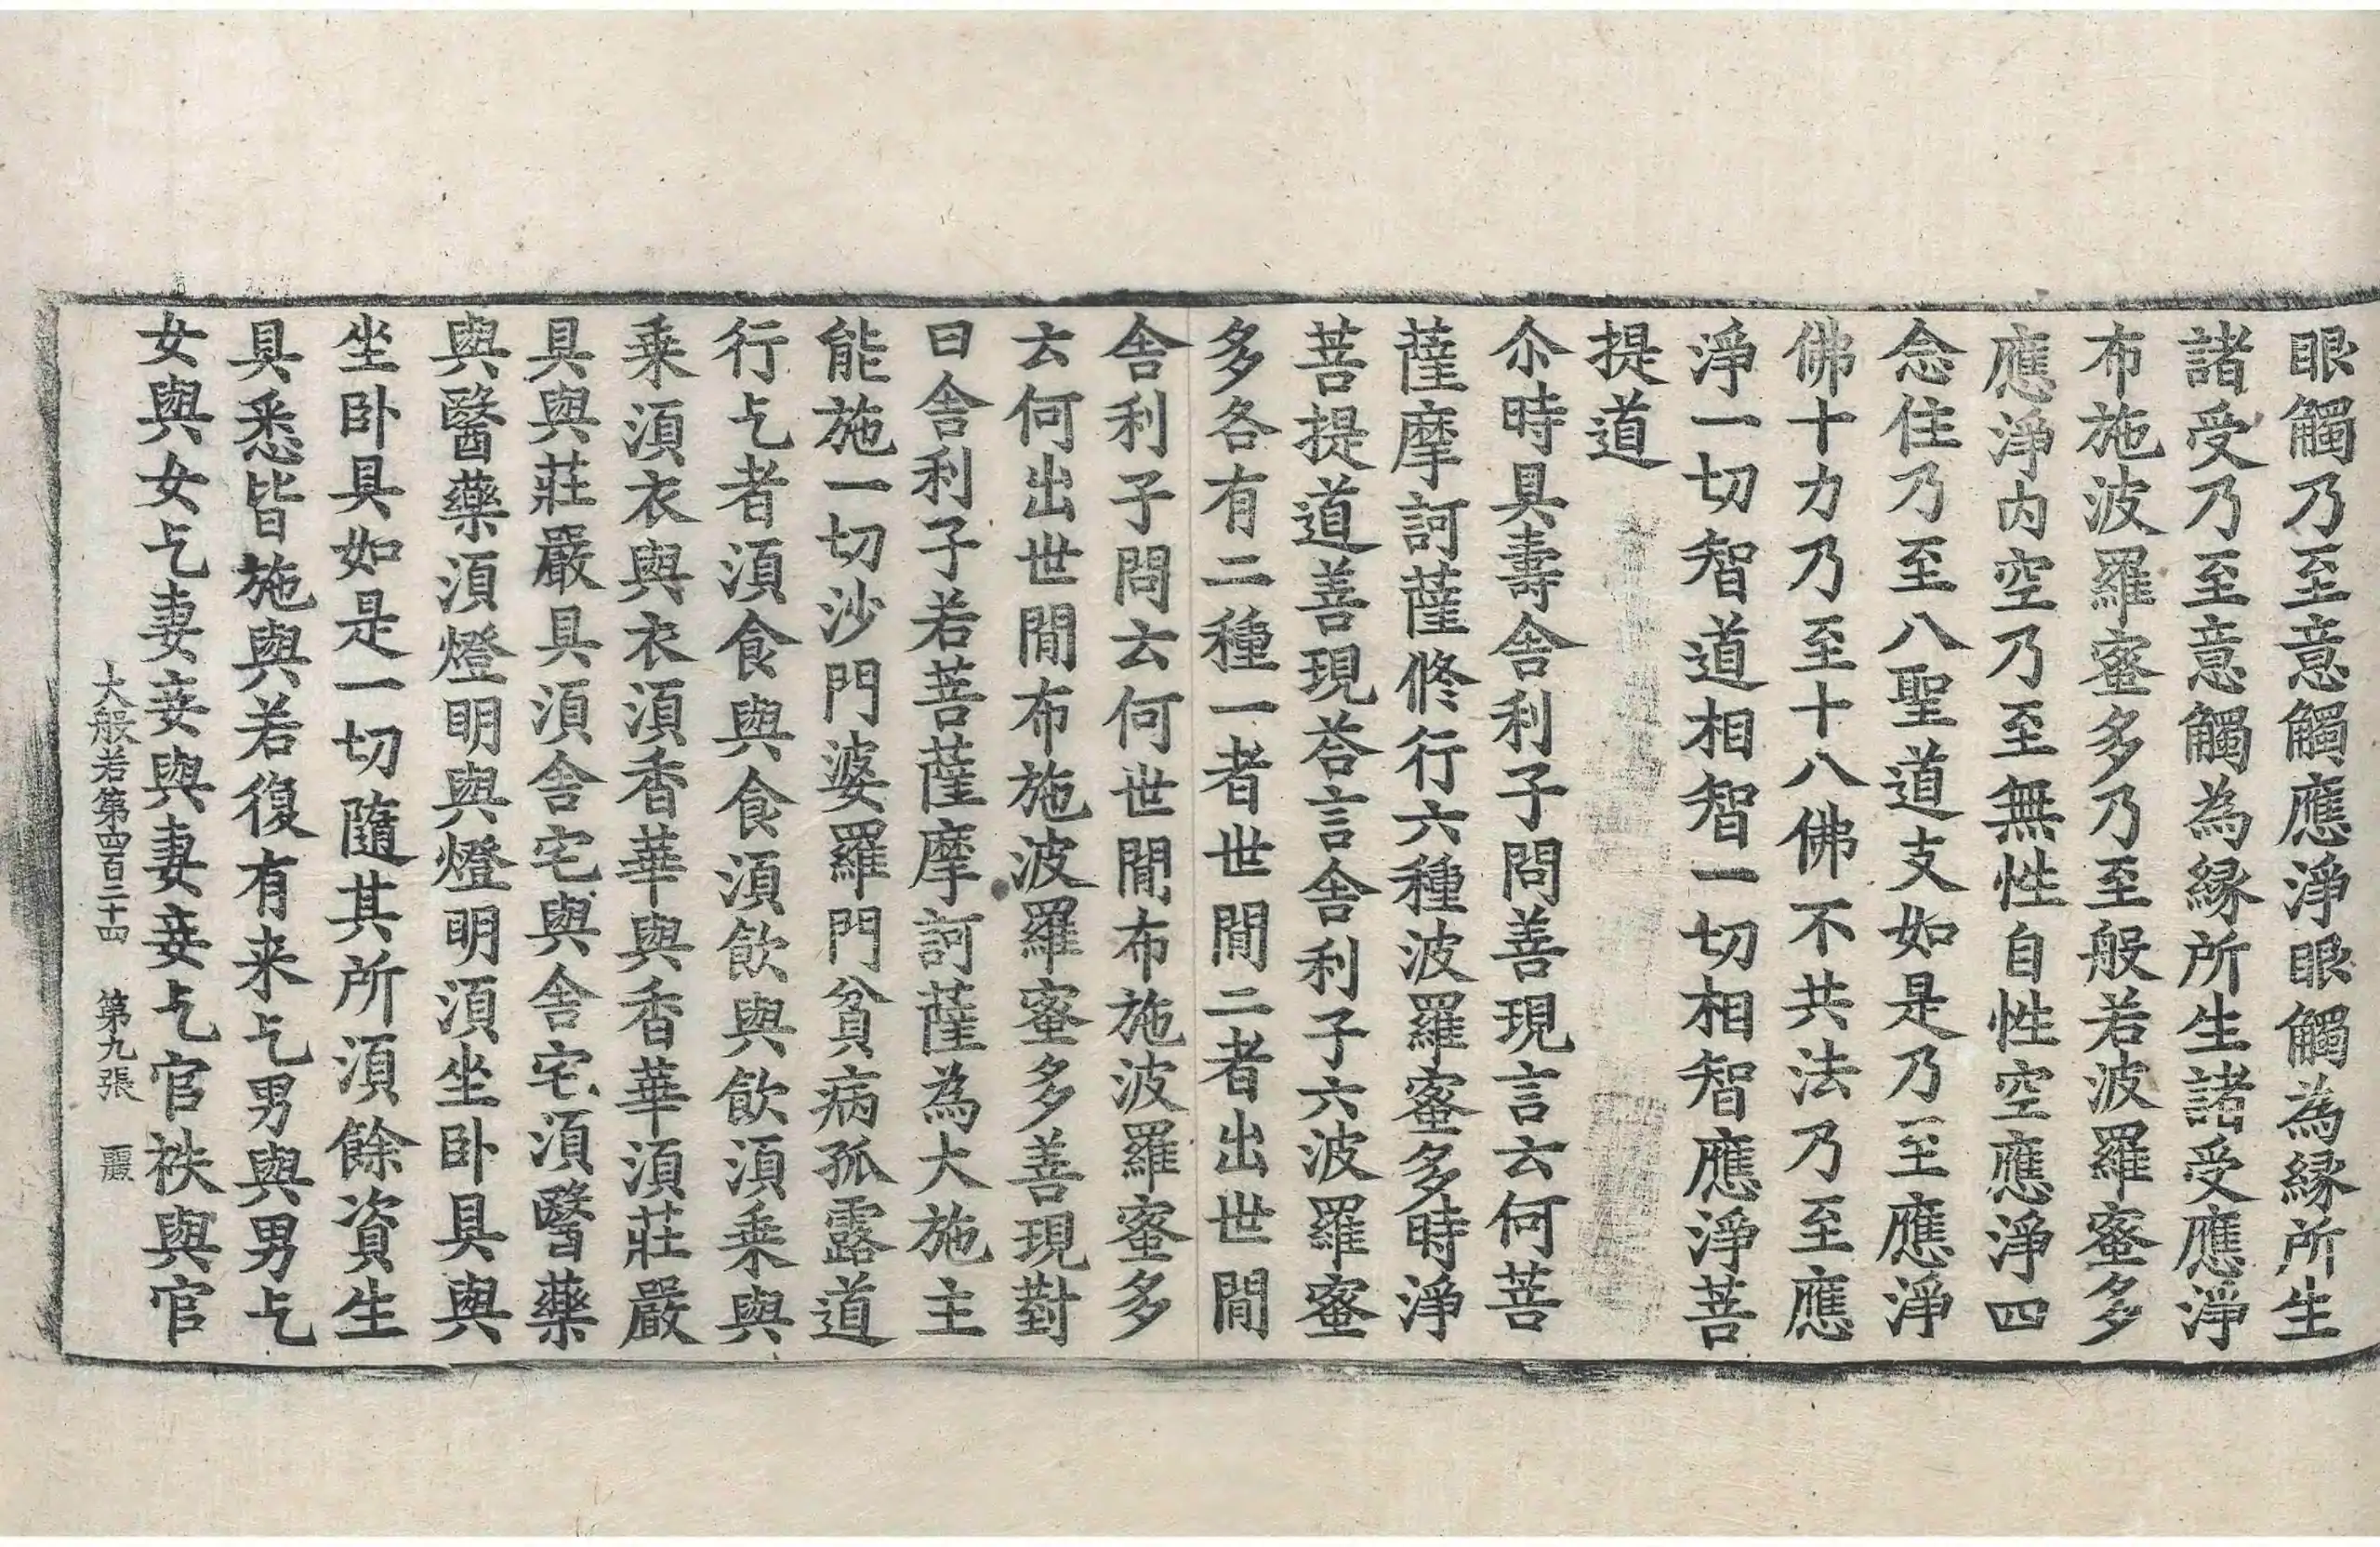 眼觸乃至意觸應淨眼觸為緣所生
諸受乃至意觸為緣所生諸受應淨
布施波羅蜜多乃至般若波羅蜜多
應淨內空乃至無性自性空應淨四
念住乃至八聖道支如是乃至應淨
佛十力乃至十八佛不共法乃至應
淨一切智道相智一切相智應淨菩
提道
尒時具壽舍利子問善現言云何菩
薩摩訶薩修行六種波羅蜜多時淨
菩提道善現荅言舍利子六波羅蜜
多各有二種一者世閒二者出世閒
舍利子問云何世閒布施波羅蜜多
云何出世閒布施波羅蜜多善現對
曰舍利子若菩薩摩訶薩為大施主
能施一切沙門婆羅門貧病孤露道
行乞者須食與食須飲與飲須乗與
乗須衣與衣須香華與香華須莊嚴
具與莊嚴具須舍宅與舍宅須醫藥
與醫藥須燈明與燈明須坐卧具與
坐卧具如是一切隨其所須餘資生
具悉皆施與若復有来乞男與男乞
女與女乞妻妾與妻妾乞官袟與官
大般若第四百二十四 第九張 麗